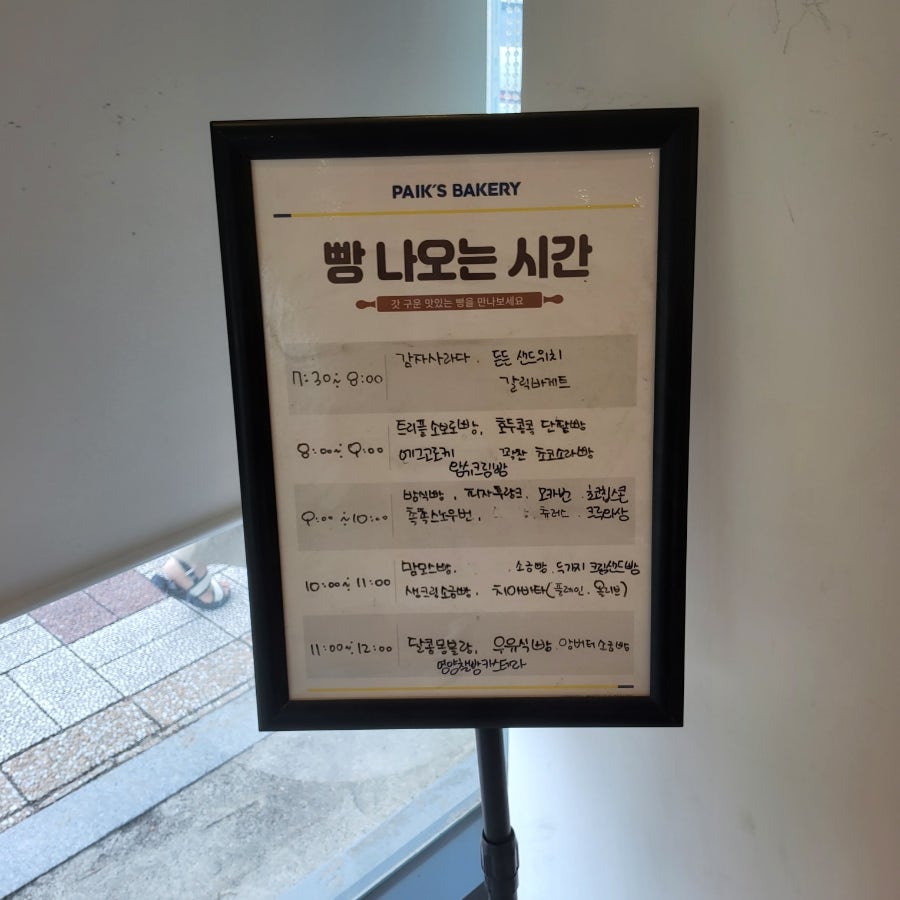 PAIK'S BAKERY
빵 나오는 시간
갓 구운 맛있는 빵을 만나보세요
7:30~8:00
감자사라다. 든든샌드위치
갈릭바게트
8:00~9:00
트리플소보로빵, 호두콩콕 단팥빵
에그고로케 꽉찬 쵸코소라빵
맘슈크림빵
9:00~10:00
밤식빵, 피자후랑크. 모카번. 초코칩스콘
촉촉스노우번, 츄러스. 크루아상
10:00~11:00
맘모스빵. 소금빵. 두가지 크림샌드빵
생크림소금빵. 치아바타(플레인. 올리브)
11:00~12:00
달콤몽블랑, 우유식빵 앙버터소금빵
명양찰빵카스테라